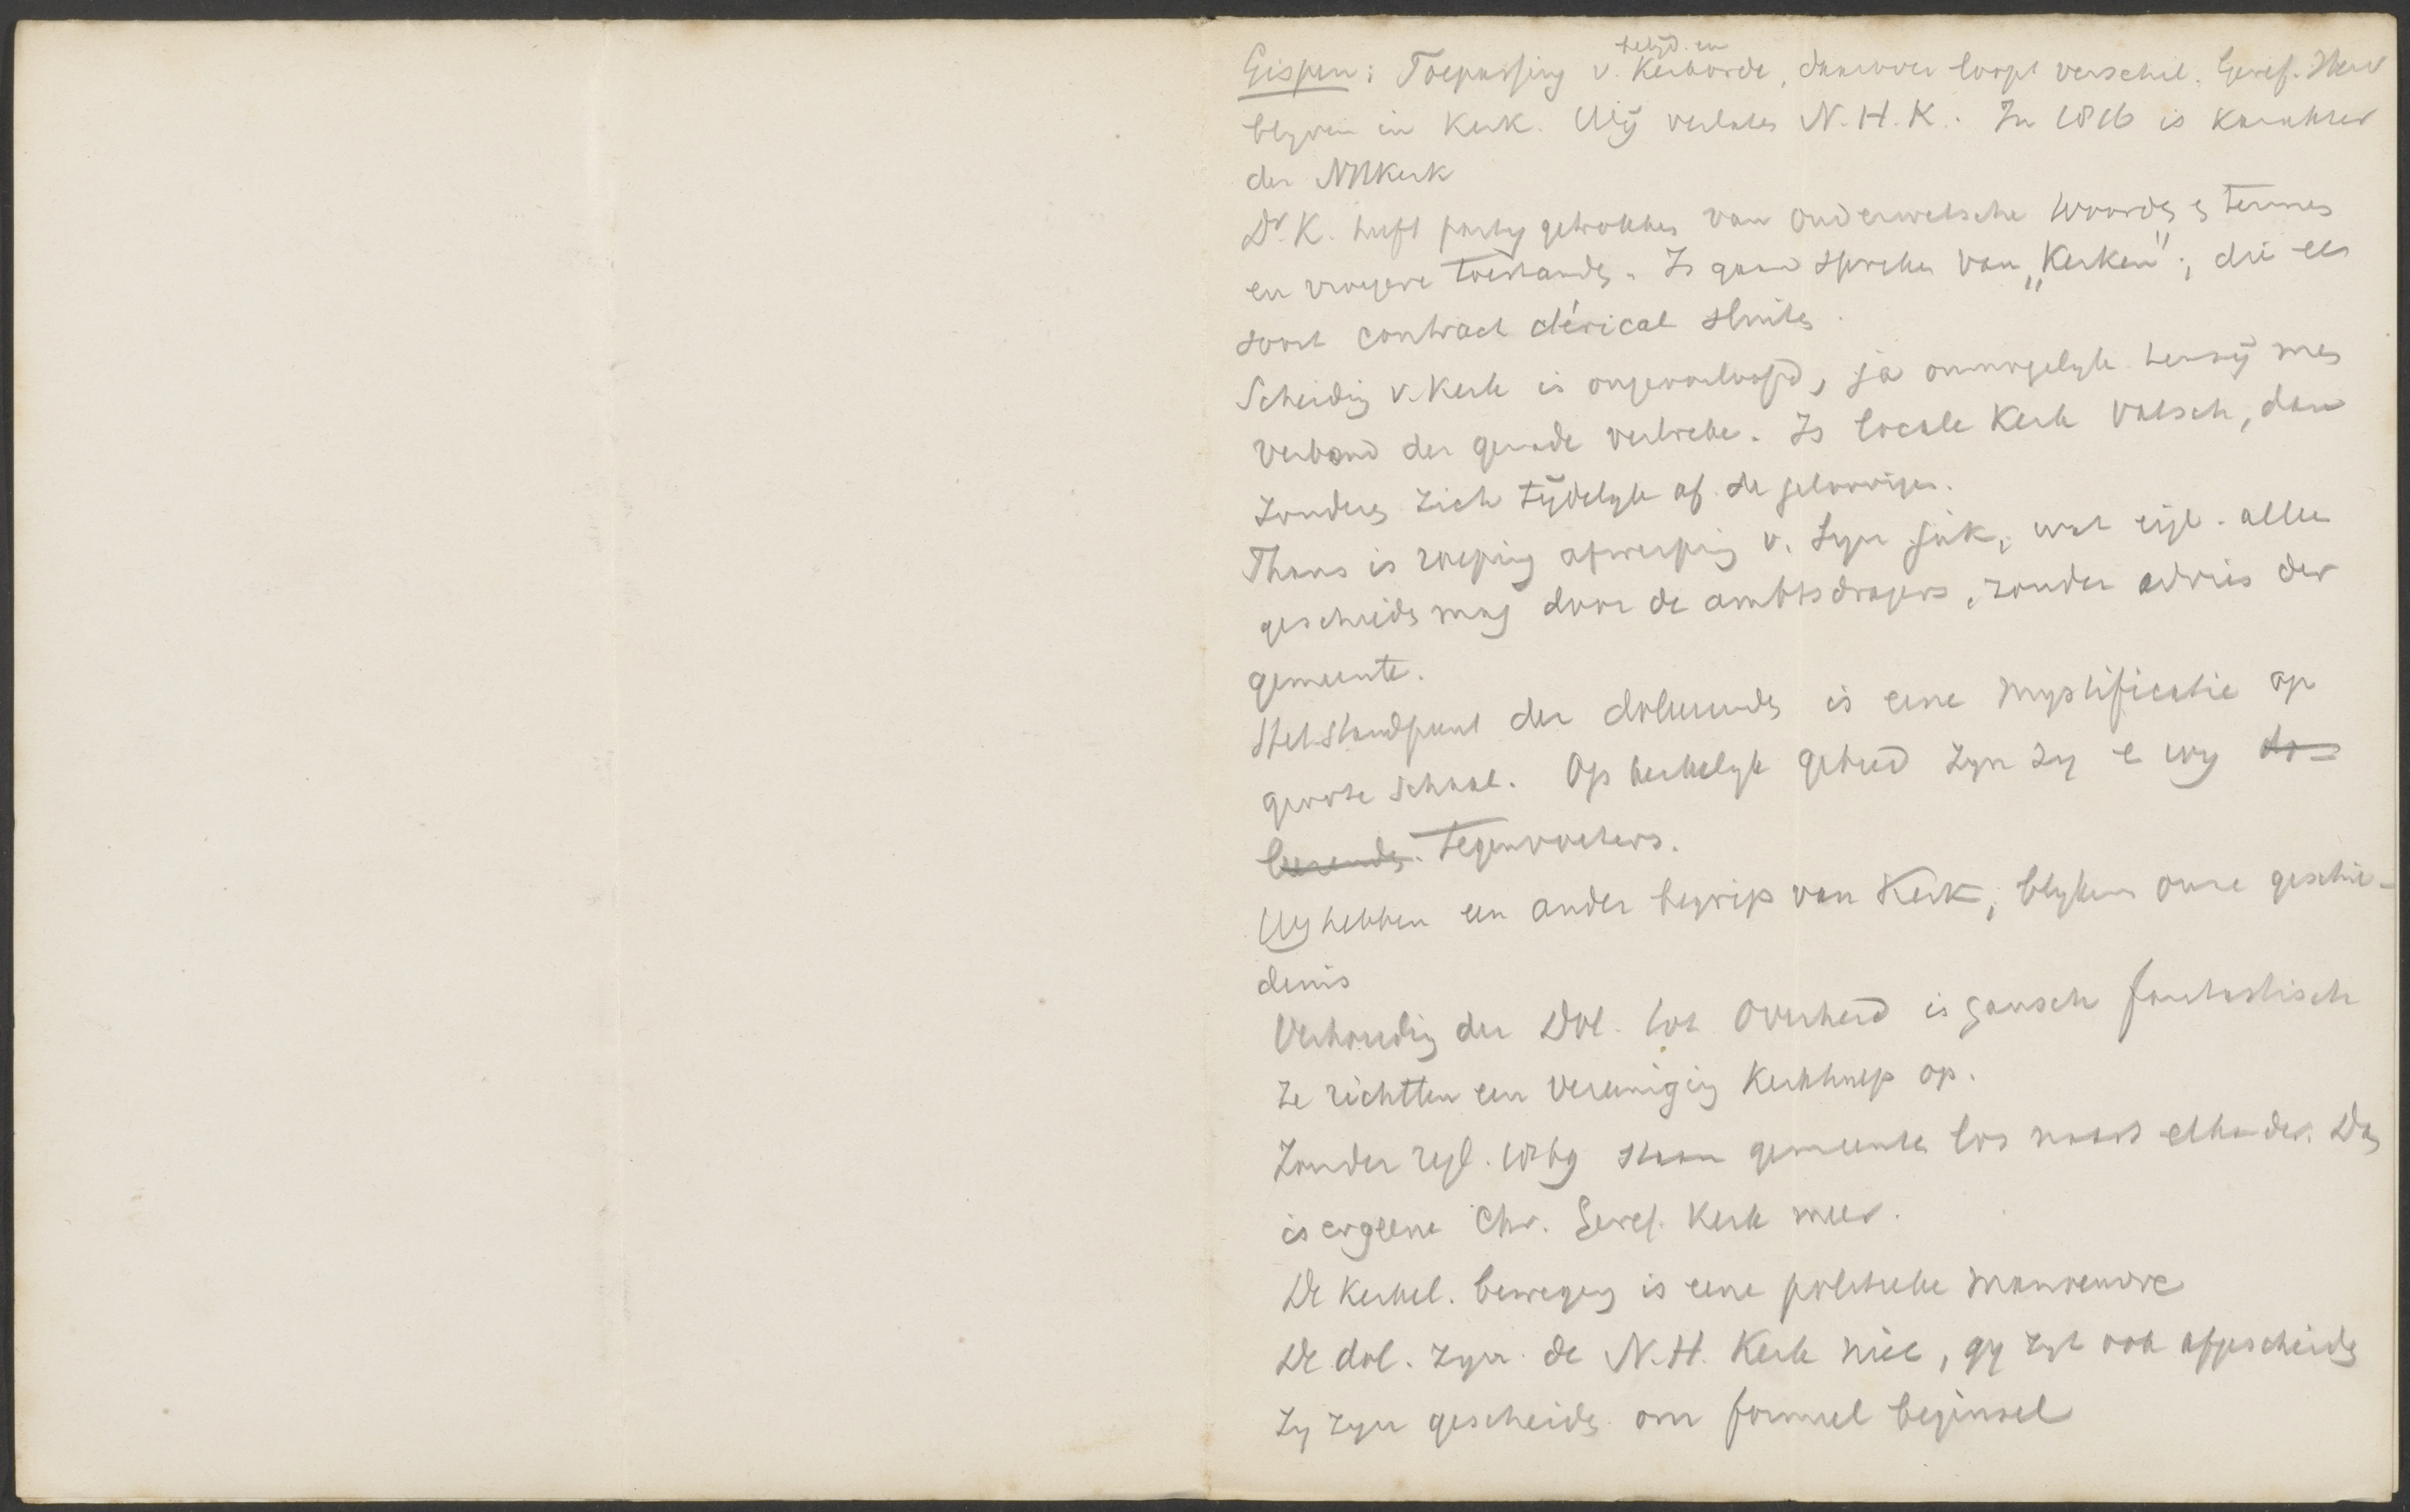 Gispen: Toepassing v. belijd. en Kerkorde, daarover loopt verschil. Geref. Herv
blyven in Kerk. Wij verlaten N.H.K. In 1816 is karakter
der NHKerk
Dr. K. heeft party getrokken van ouderwetsche woorden en termen
en vroegere toestanden. Is gaan spreken van „Kerken", die een
soort contract clérical sluiten.
Scheiding v. Kerk is ongeoorloofd, ja onmogelyk tenzij men
verbond der genade verbreke. Is locale Kerk valsch, dan
zonderen zich tijdelyk af de geloovigen.
Thans is roeping afwerping v. Syn. juk, wat eigl. alleen
geschieden mag door de ambtsdragers, zonder advies der
gemeente.
Het standpunt der doleerenden is eene mystificatie op
groote schaal. Op kerkelyk gebied zyn zy en wy do-
leerenden. tegenvoeters.
Wy hebben een ander begrip van Kerk, blykens onze geschie-
denis
Verhouding der Dol. tot Overheid is gansch fantastisch
Ze richtten een vereeniging Kerkhulp op.
Zonder regl. 1869 staan gemeenten los naast elkander. Dan
is er geene Chr. Geref. Kerk meer.
De kerkel. beweging is eene politieke manoeuvre
De dol. zyn de N.H. Kerk niet, gy zyt ook afgescheiden
Zy zyn gescheiden om formeel beginsel